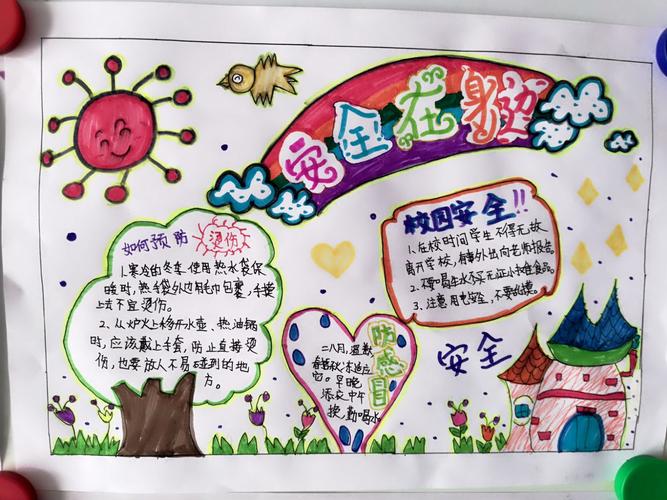 安全在身边
如何预防
烫伤
1.寒冷的冬季,使用热水袋保
暖时,热水袋外边用毛巾包裹,手摸
上去不宜烫伤。
2、从炉火上移开水壶、热油锅
时,应该戴上手套,防止直接烫
伤,也要放人不易碰到的地
方。
校园安全!!
1、在校时间学生不得无故
离开学校,有事外出向老师报告。
2、不要喝生水不买无证小摊食品。
3、注意用电安全,不要乱摸。
防感冒
二八月,
早晚
添衣中午
换,勤喝水
安全